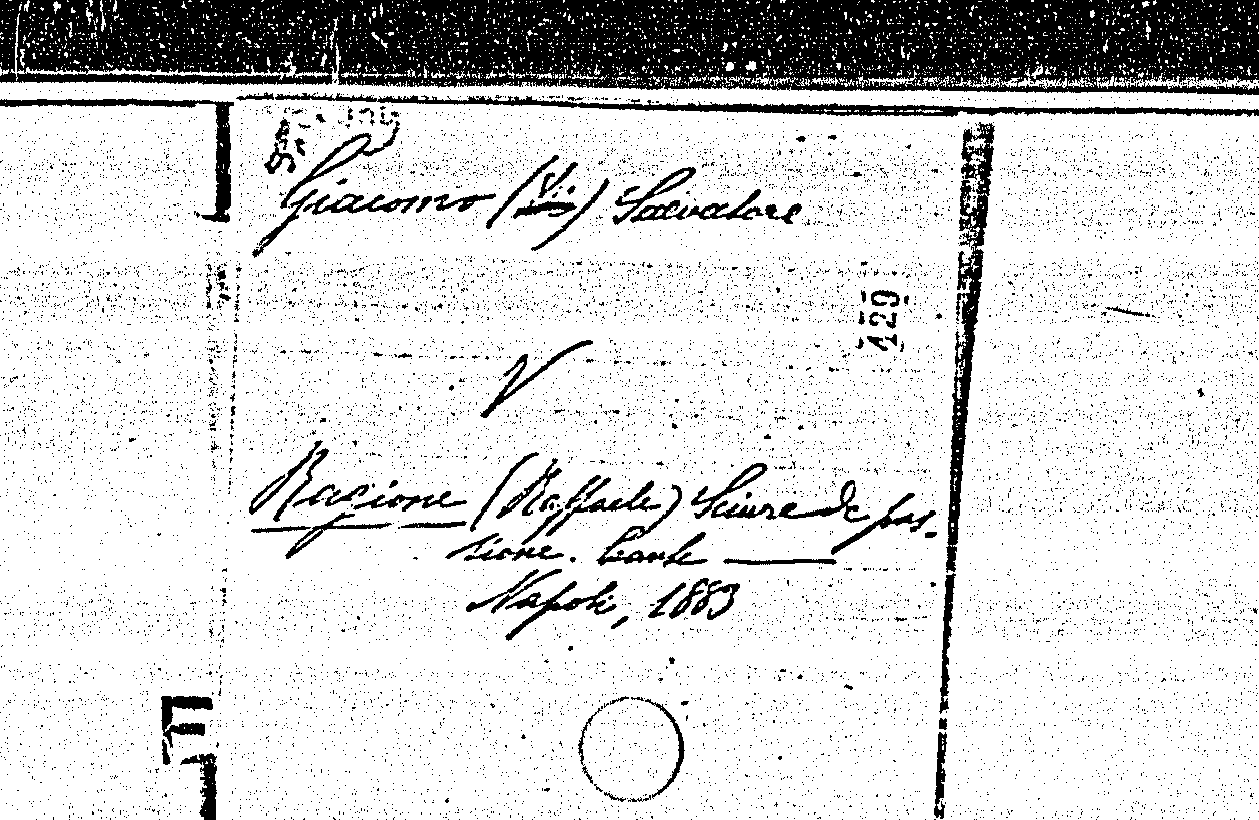 Giacomo (Di) Salvatore
V
120
Ragione (Raffaele) Scivre de pas-
sione. Canto
Napoli, 1883